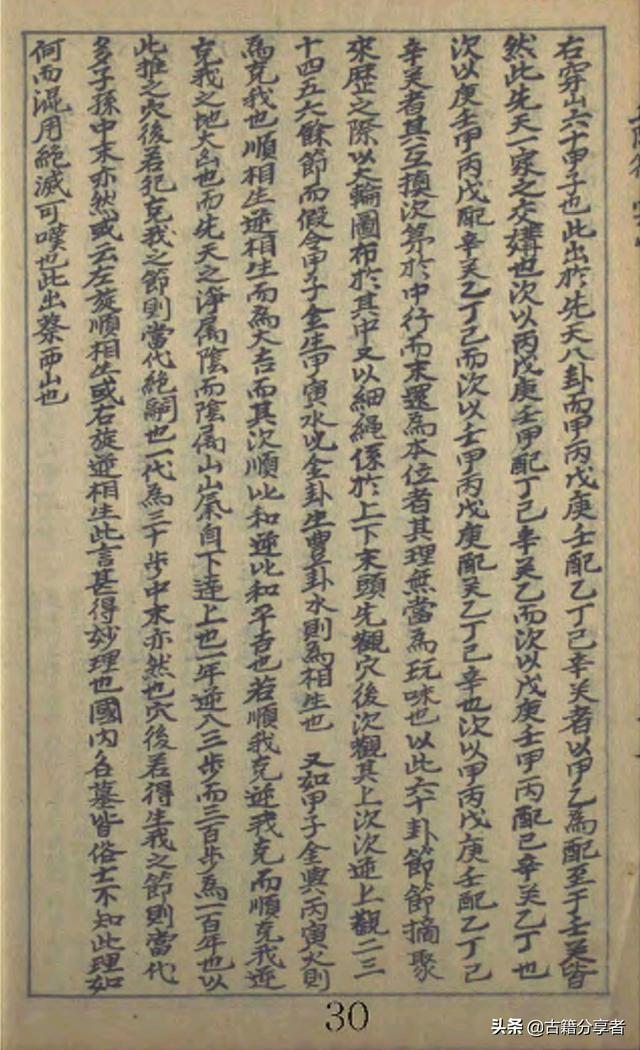 右穿山六十甲子也此出於先天八卦而甲丙戊庚壬配乙丁己辛癸者以甲乙為配至于壬癸皆
然此先天一家之交媾也次以丙戊庚壬甲配丁己辛癸乙而次以戊庚壬甲丙配己辛癸乙丁也
次以庚壬甲丙戊配辛癸乙丁己而次以壬甲丙戊庚配癸乙丁己辛也次以甲丙戊庚壬配乙丁己
辛癸者其互換次第於中行而末還為本位者其理無當為玩味也以此六十卦節節摘聚
來歷之際以大輪圖布於其中又以細繩係於上下末頭先觀穴後次觀其上次次逆上觀二三
十四五六餘節而假令甲子金生甲寅水兌金卦生豊卦水則為相生也 又如甲子金與丙寅火則
為克我也順相生逆相生而為大吉而其次順比和逆比和平吉也若順我克逆我克而順克我逆
克我之地大凶也而先天之淨属陰而陰属山山氣自下達上也一年逆入三步而三百步為一百年也以
此推之穴後若犯克我之節則當代絕嗣也一代為三十步中末亦然也穴後若得生我之節則當代
多子孫中末亦然或云左旋順相生或右旋逆相生此言甚得妙理也國內各墓皆俗士不知此理如
何而混用絕滅可嘆也此出蔡西山也
30
头条 @古籍分享者